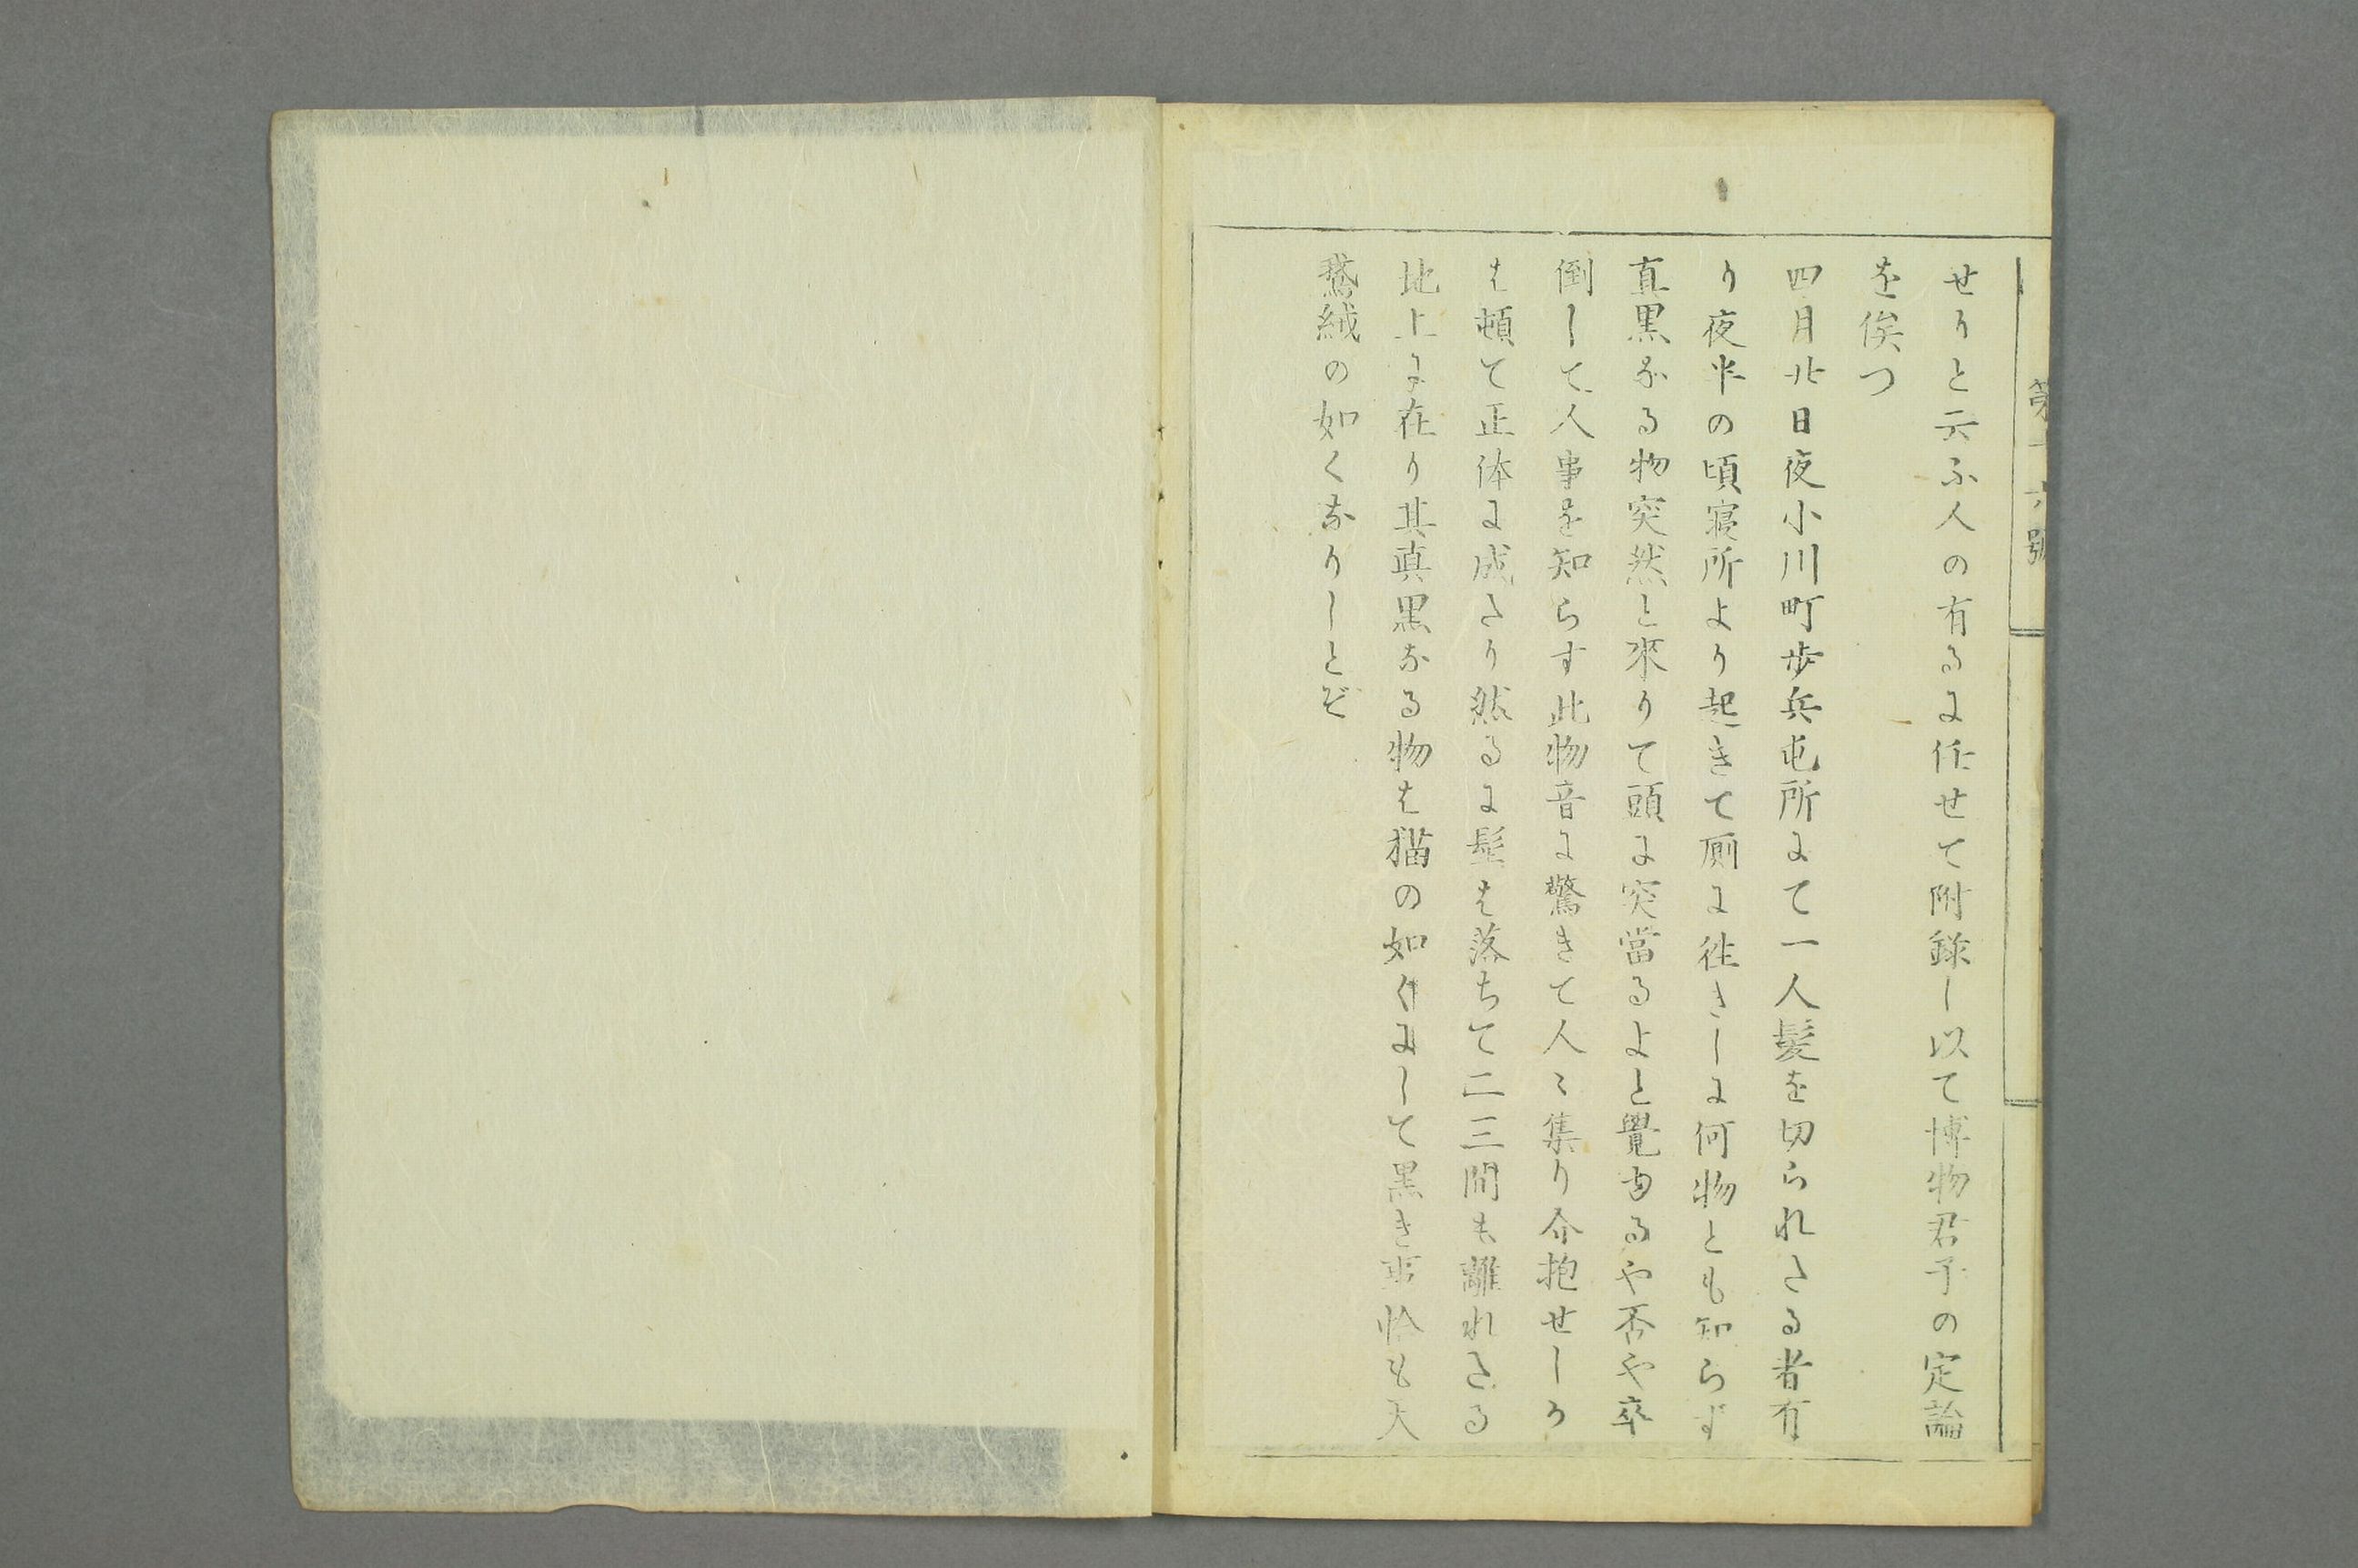 第十六號
せりと云ふ人の有るに任せて附録し以て博物君子の定論
を俟つ
四月廿日夜小川町歩兵屯所にて一人髪を切られたる者有
り夜半の頃寝所より起きて厠に往きしに何物とも知らず
真黒なる物突然と來りて頭に突當るよと覺ゆるや否や卒
倒して人事を知らす此物音に驚きて人〻集り介抱せしう
は頓て正体に成たり然るに髷は落ちて二三間も離れたる
地上に在り其真黒なる物は猫の如くにして黒き事恰も天
鵞絨の如くなりしとぞ